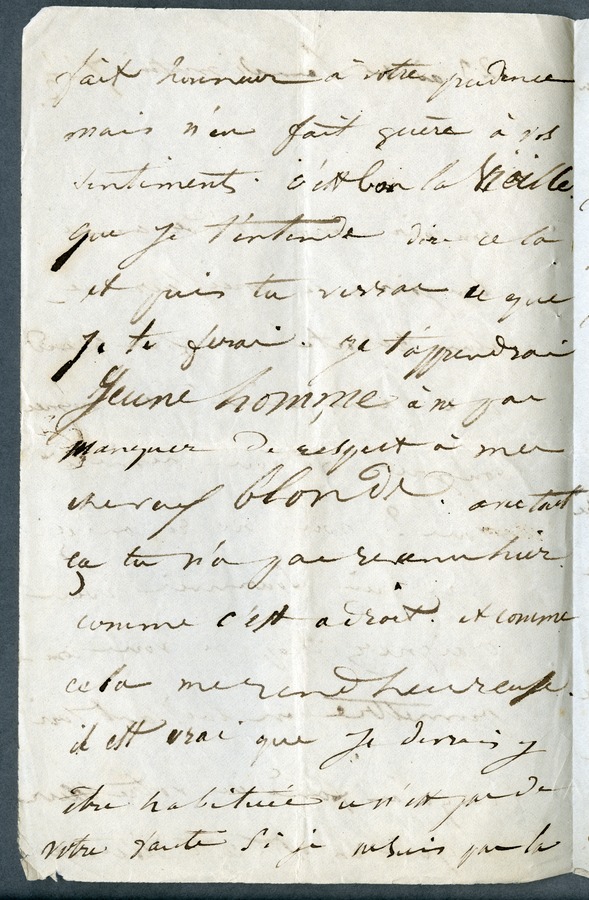 fait honneur à votre prudence
mais n'en fait guère à vos
sentiments. c'est bon la Vieille.
que je t'entende dire cela
et puis tu verras ce que
Je te ferai. ça t'apprendrai
Jeune homme à ne pas
manquer de respect à mes
cheveux blonds. avec tout
ça tu n'a pas revenu hier.
comme c'est adroit. et comme
cela me rend heureuse.
il est vrai que je devrais y
être habituée ce n'est pas de
votre faute si je ne suis pas la